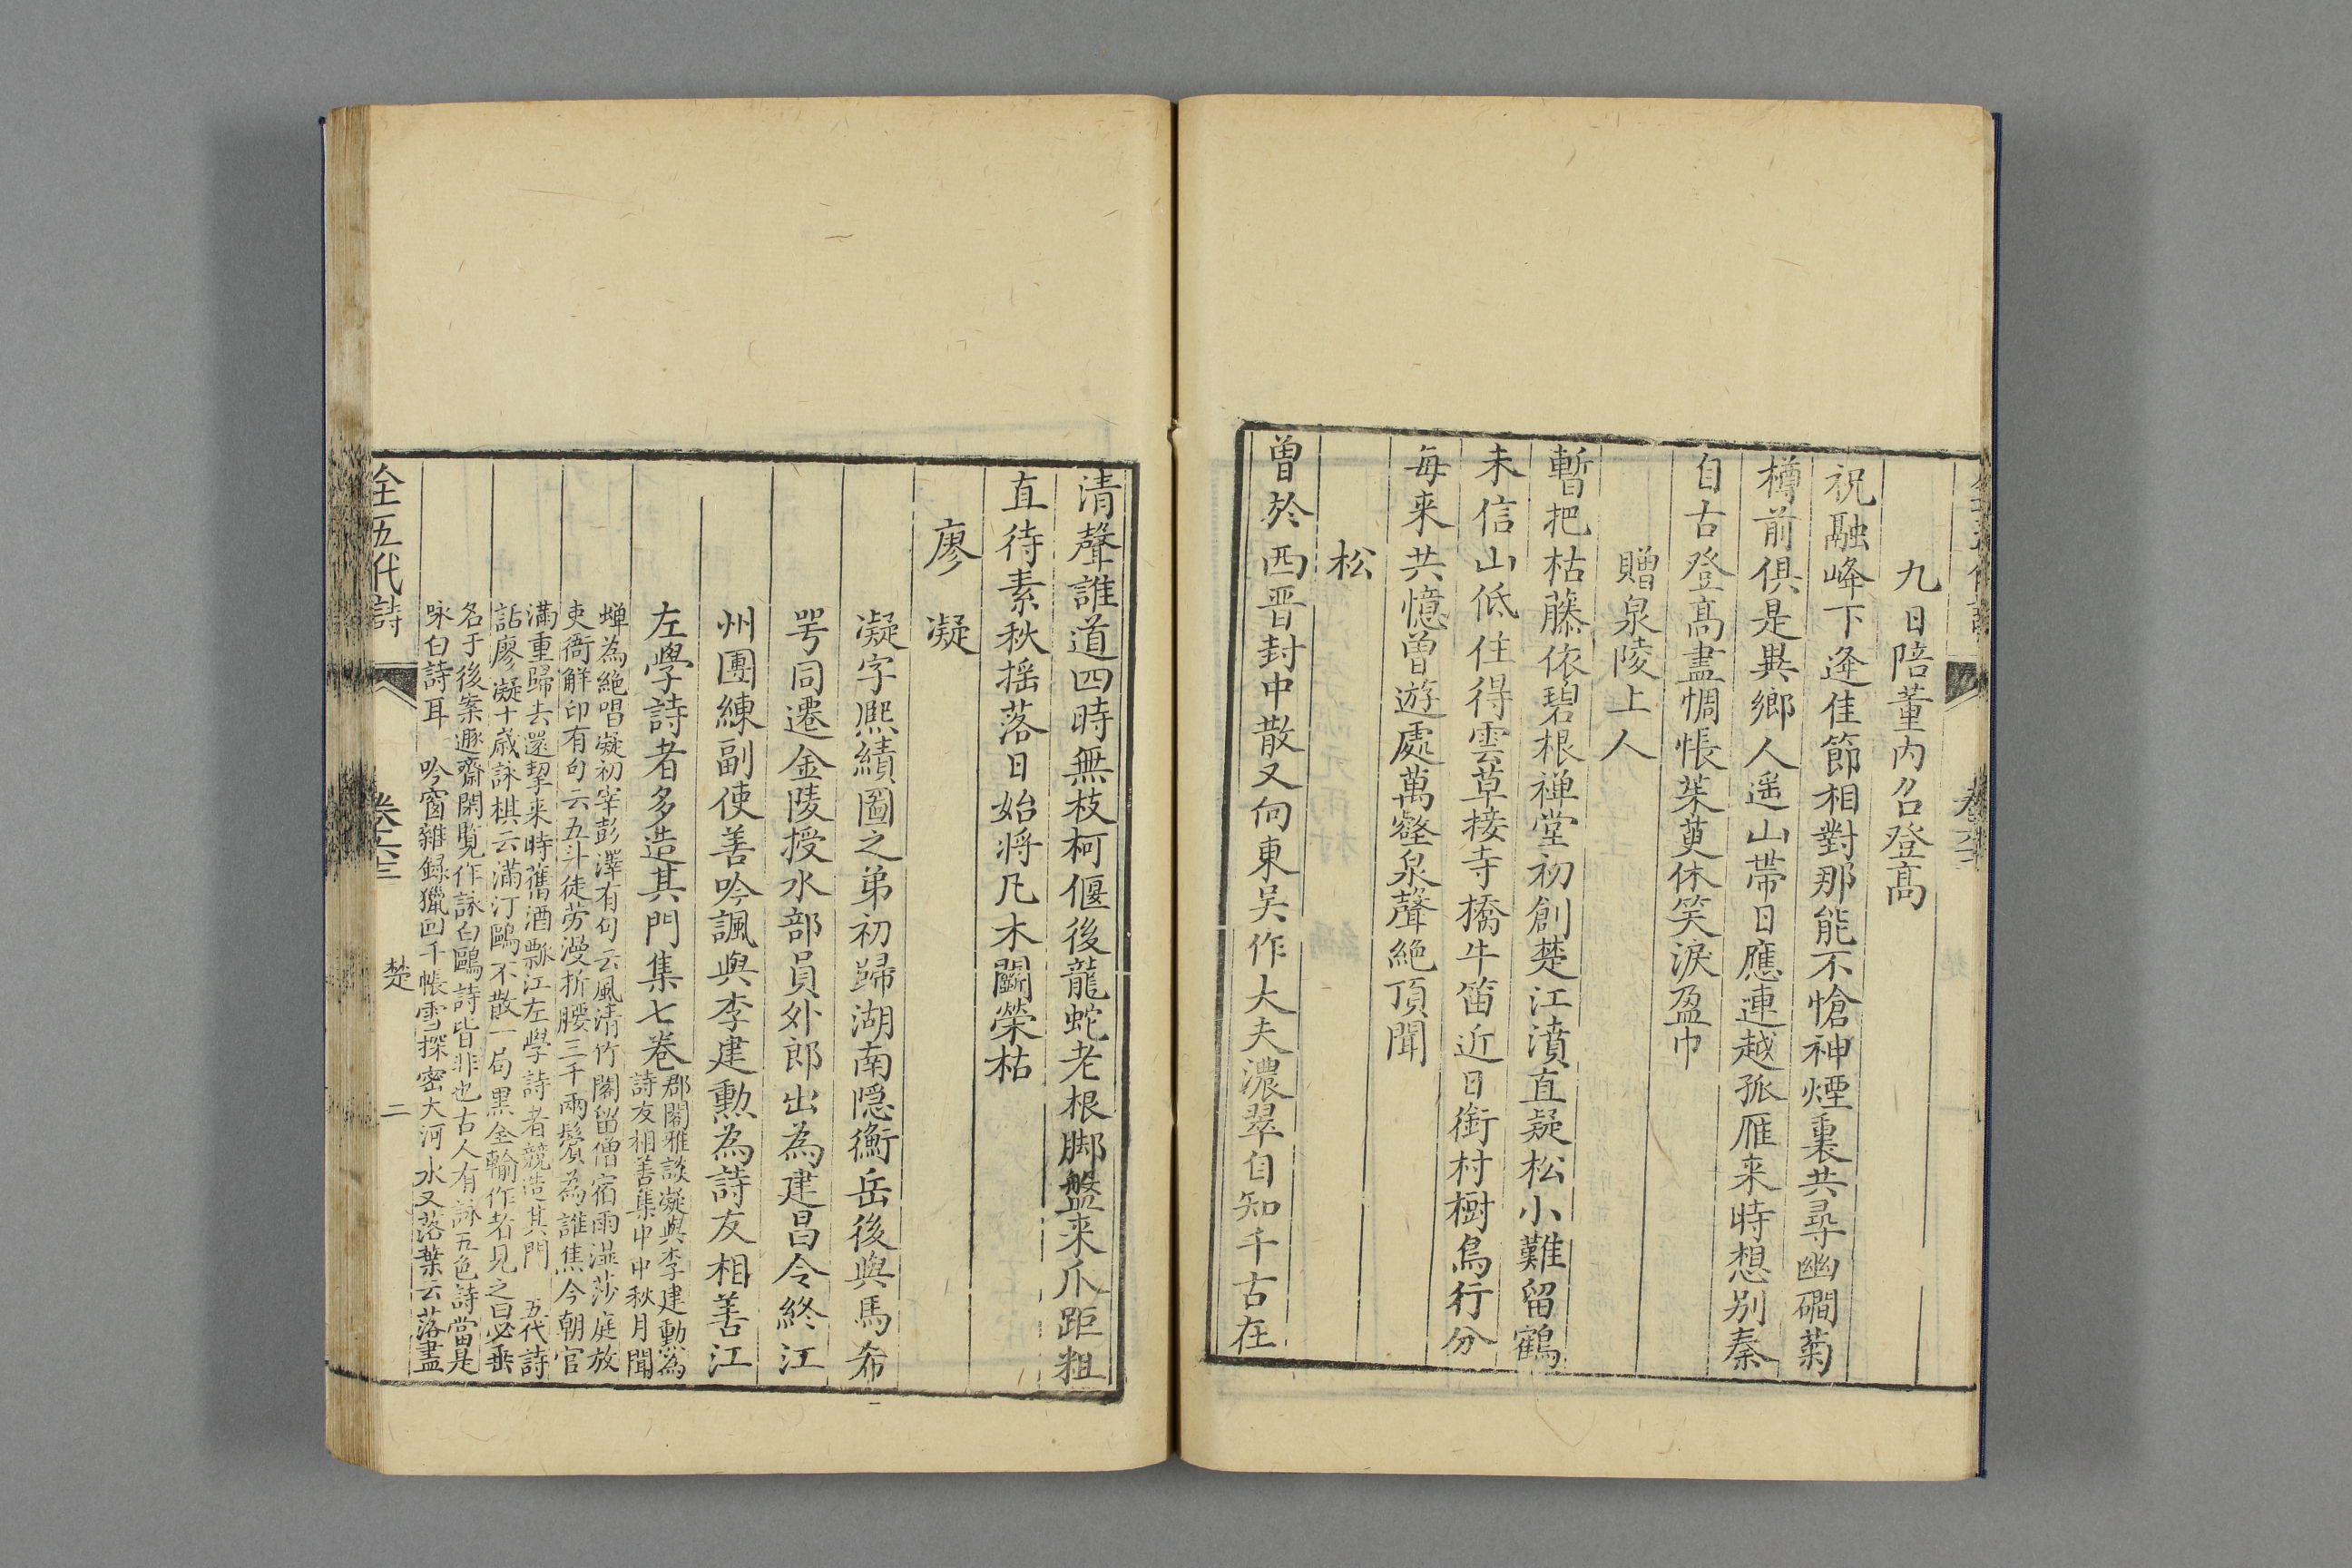 九日陪董内召登高
祝融峰下逢佳節相對那能不愴神煙裏共尋幽磵菊
樽前俱是異鄉人遥山帶日應連越孤雁来時想别秦
自古登高盡惆悵茱萸休笑淚盈巾
贈泉陵上人
暫把枯藤依碧根禅堂初創楚江濆直疑松小難留鶴
未信山低住得雲草接寺橋牛笛近日銜村樹鳥行分
每来共憶曽遊處萬壑泉聲絶頂聞
松
曽於西晋封中散又向東吴作大夫濃翠自知千古在
清聲誰道四時無枝柯偃後龍蛇老根脚盤来爪距粗
直待素秋摇落日始将凡木鬭榮枯
廖凝
凝字熙績圖之弟初歸湖南隠衡岳後與馬希
咢同遷金陵授水部員外郎出為建昌令終江
州團練副使善吟諷與李建勲為詩友相善江
左學詩者多造其門集七卷
郡閣雅談凝與李建勲為
詩友相善集中中秋月聞
蟬為絶唱凝初宰彭澤有句云風清竹閣留僧宿雨湿莎庭放
吏衙解印有句云五斗徒労漫折腰三千兩鬢為誰焦今朝官
滿重歸去還挈来時舊酒瓢江左學詩者競造其門 五代詩
話廖凝十歳詠棋云滿汀鷗不散一局黒全輸作者見之曰必垂
名于後案遯齋閑覧作詠白鷗詩皆非也古人有詠五色詩當是
咏白詩耳 吟窗雜録獵回千帳雪探密大河水又落葉云落盡
全五代詩
楚
二